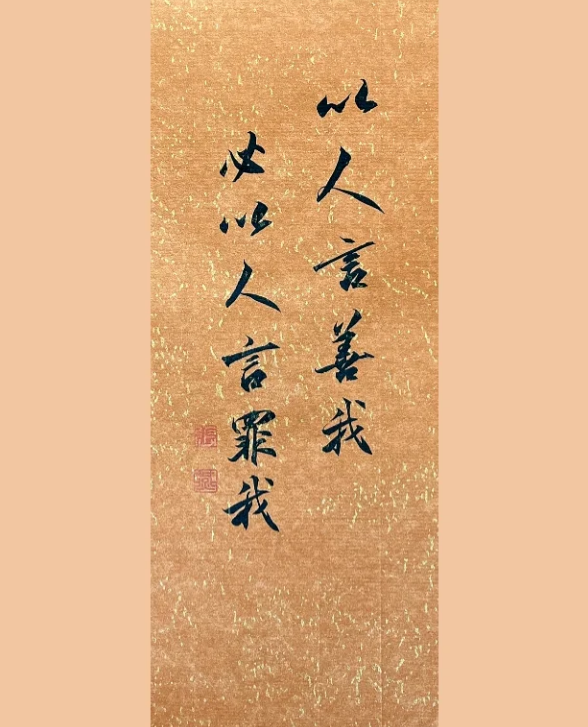 以人言善我
必以人言罪我